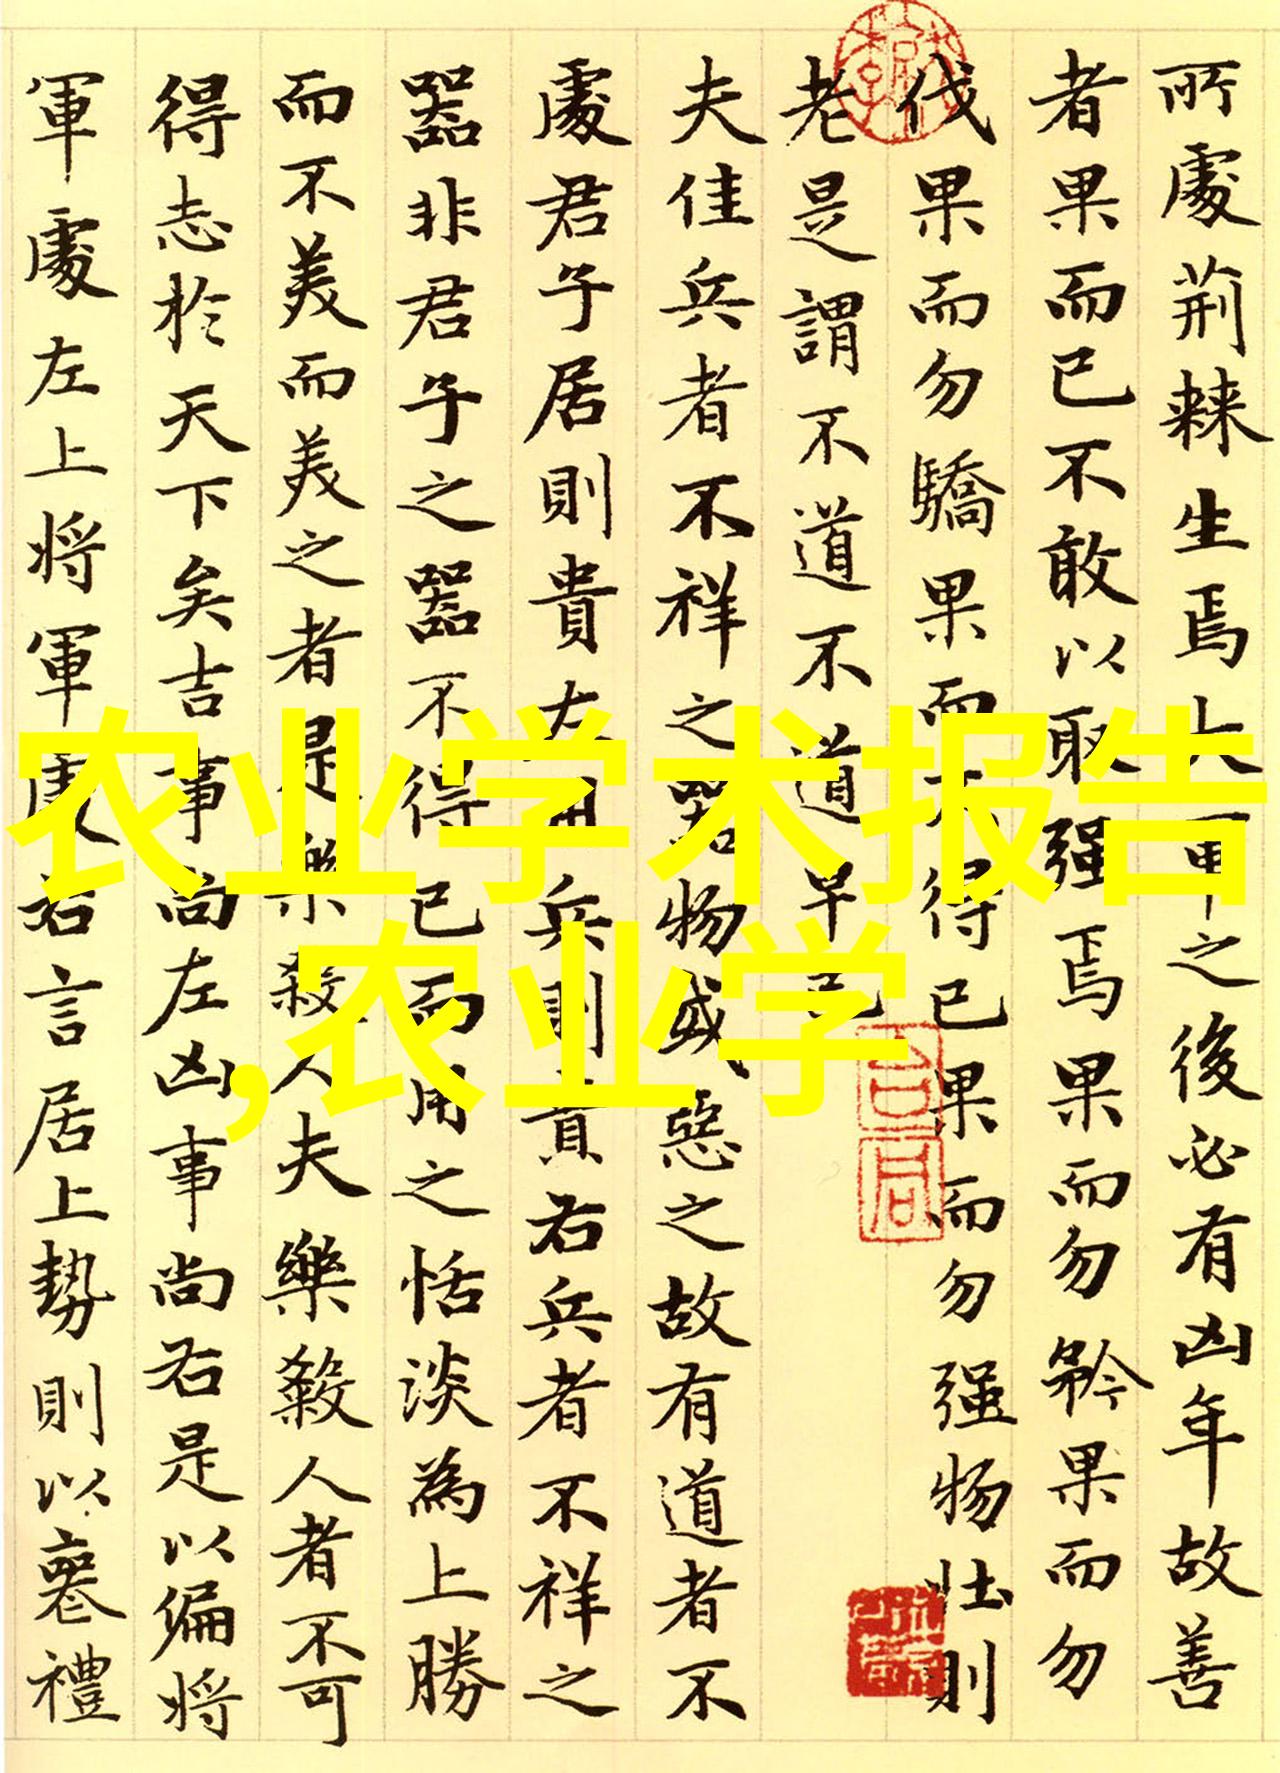 所處荊棘生焉大軍之後必有凶年故善
者果而已不敢以取强焉果而勿矜果而勿
伐果而勿驕果而不得已果而勿强物壯則
老是謂不道不道早已
夫佳兵者不祥之器物或惡之故有道者不
處君子居則貴左用兵則貴右兵者不祥之
器非君子之器不得已而用之恬淡為上勝
而不美而美之者是樂殺人夫樂殺人者不可
得志於天下矣吉事尚左凶事尚右是以偏將
軍處左上將軍處右言居上勢則以喪禮
农业学术报告
,农业学